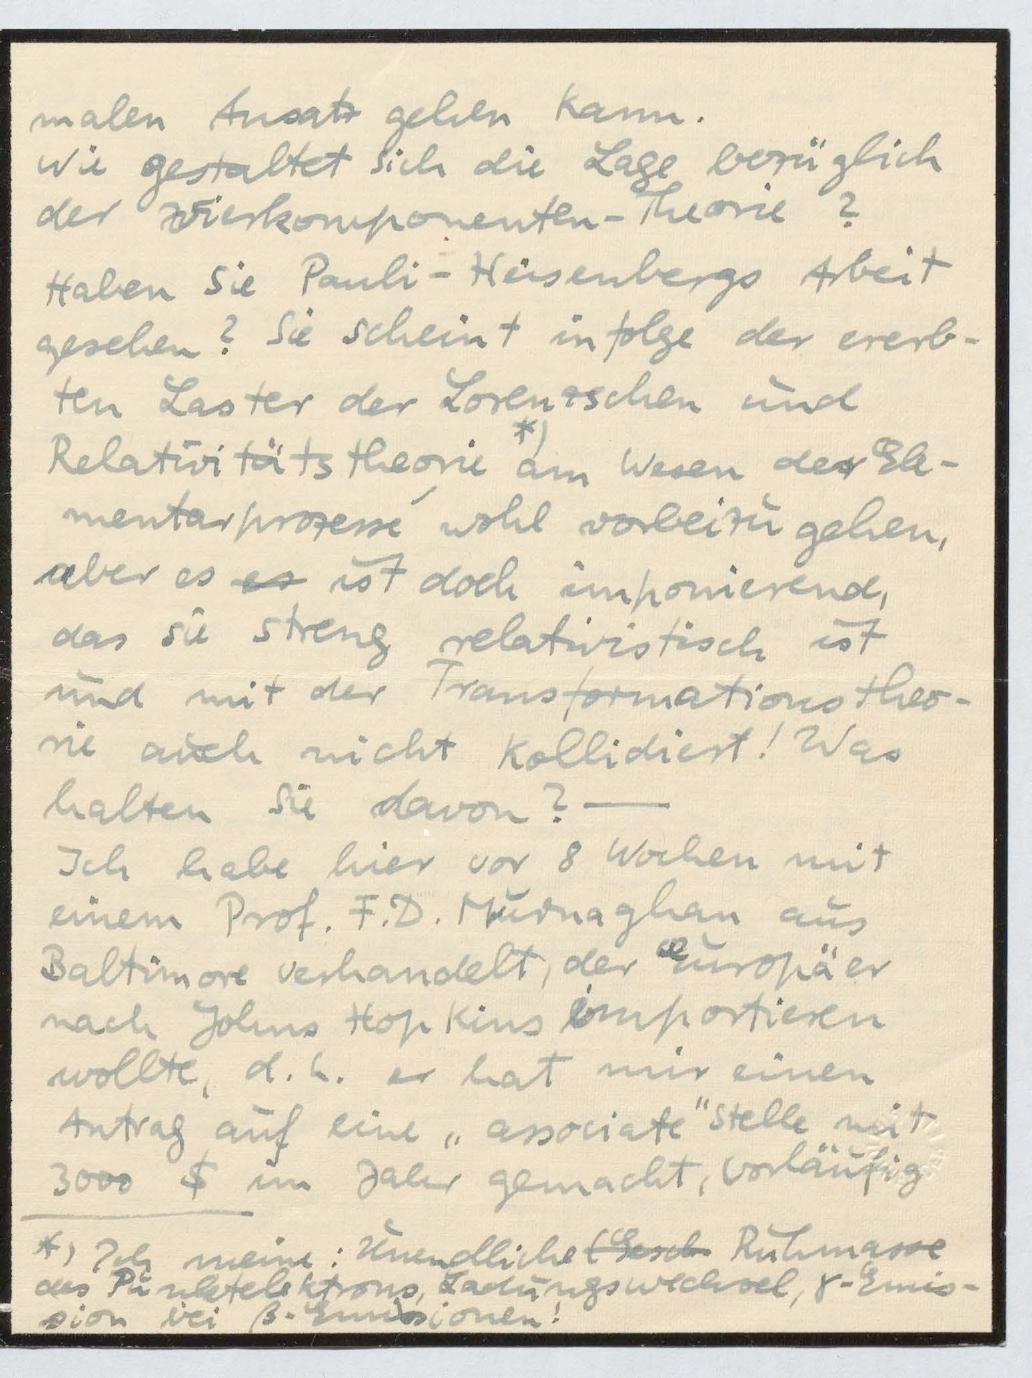 malen Ansatz gehen kann.
Wie gestaltet sich die Lage bezüglich
der Vierkomponenten-Theorie?
Haben Sie Pauli-Heisenbergs Arbeit
gesehen? Sie scheint infolge der ererb-
ten Laster der Lorenzschen und
Relativitätstheorie *) am Wesen der Ele-
mentarprozesse wohl vorbeizugehen,
aber es es ist doch imponierend,
das sie streng relativistisch ist
und mit der Transformationstheo-
rie auch nicht kollidiert! Was
halten Sie davon? —
Ich habe hier vor 8 Wochen mit
einem Prof. F.D. Murnaghan aus
Baltimore verhandelt, der Europäer
nach Johns Hopkins importieren
wollte, d.h. er hat mir einen
Antrag auf eine „associate" Stelle mit
3000 $ im Jahr gemacht, vorläufig
*) Ich meine: Unendliche (Gesch Ruhmasse
des Punktelektrons, Ladungswechsel, γ-Emis-
sion bei β-Emissionen!